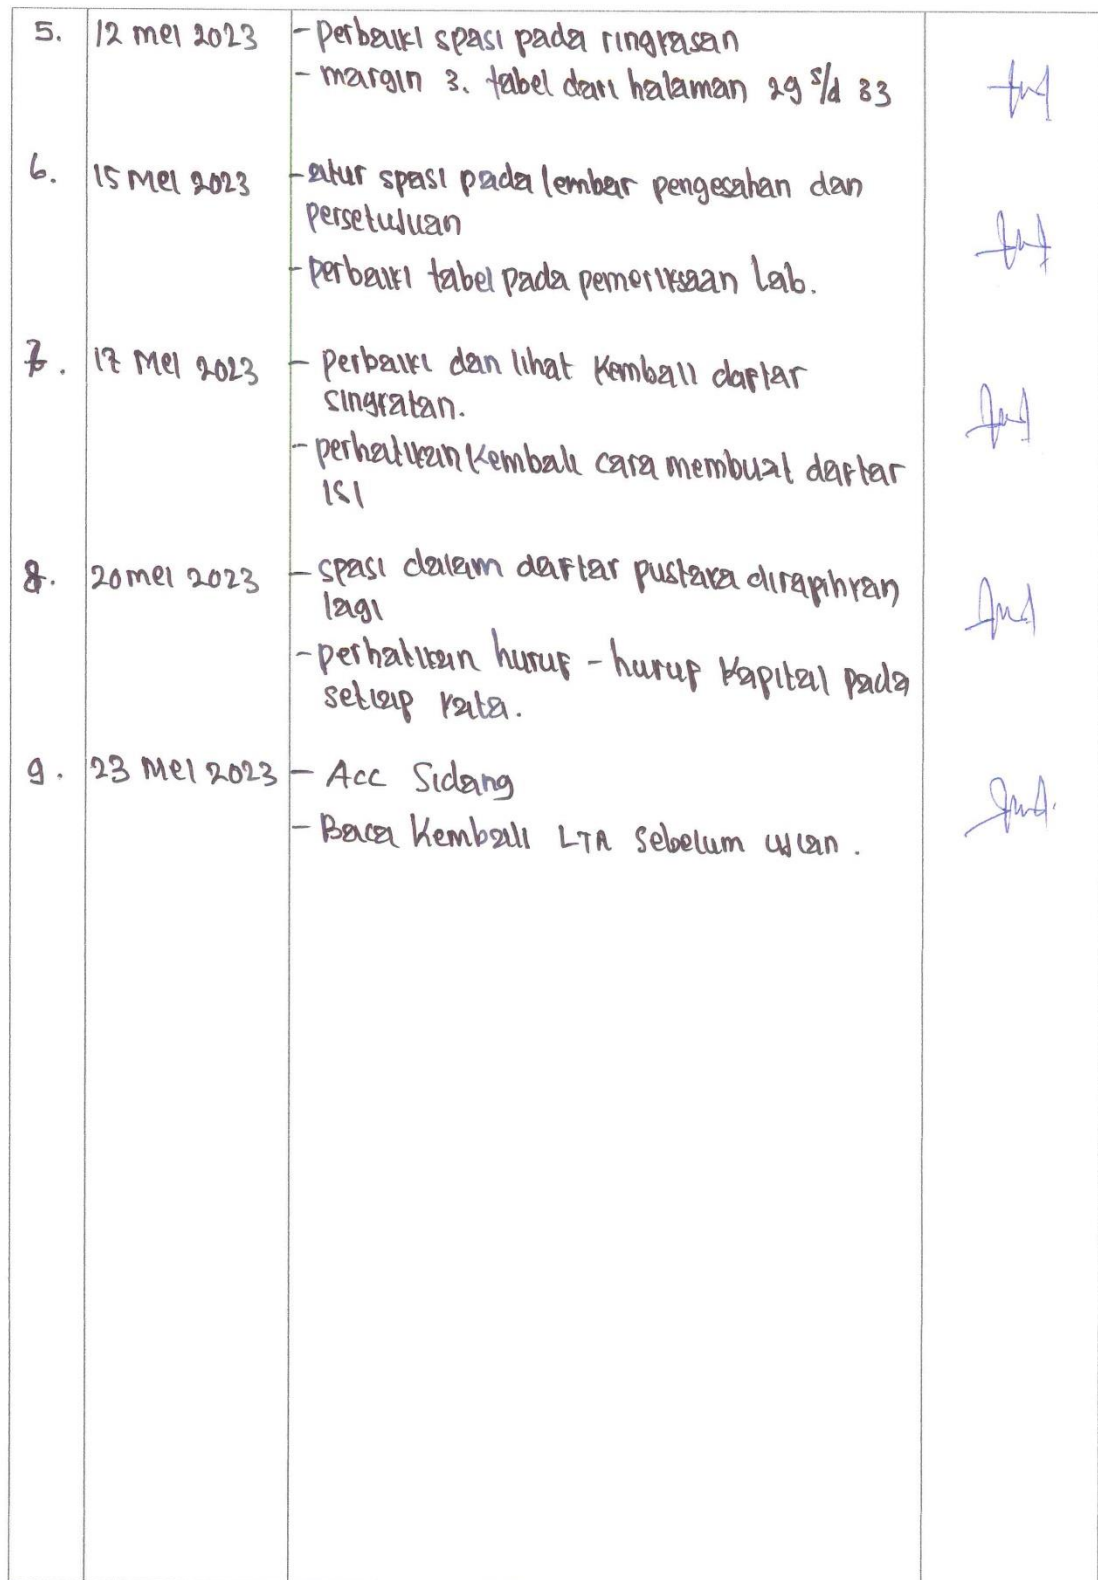 5. 12 mei 2023 - perbaiki spasi pada ringkasan
- margin 3. tabel dari halaman 29 s/d 33
6. 15 Mei 2023 - atur spasi pada lembar pengesahan dan
persetujuan
- perbaiki tabel pada pemeriksaan Lab.
7. 17 Mei 2023 - perbaiki dan lihat kembali daftar
singkatan.
- perhatikan kembali cara membuat daftar
isi
8. 20 mei 2023 - spasi dalam daftar pustaka dirapihkan
lagi
- perhatikan huruf - huruf kapital pada
setiap kata.
9. 23 Mei 2023 - Acc Sidang
- Baca kembali LTA sebelum ujian.